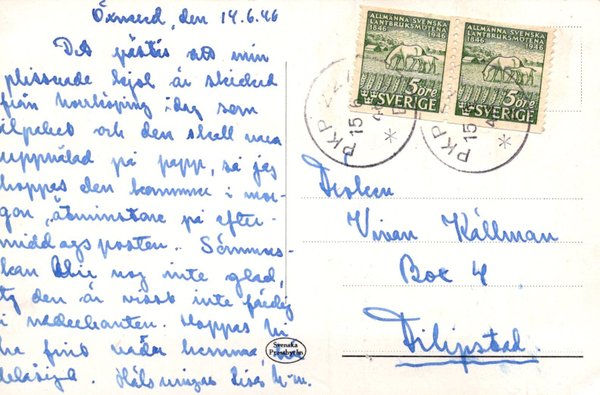 Öxnered, den 14.6.46
Det påstås att min
plisserade kjol är skickad
från Norrköping idag som
ilpaket och den skall vara
uppnålad på papp, så jag
hoppas den kommer i mor-
gon, åtminstone på efter-
middagsposten. Sömmers-
kan blir nog inte glad,
ty den är visst inte färdig
i nederkanten. Hoppas ni
ha fint väder hemma
Hälsningar
ALLMÄNNA SVENSKA
LANTBRUKSMÖTENA
1846 1946
5 ÖRE
SVERIGE
ALLMÄNNA SVENSKA
LANTBRUKSMÖTENA
1846 1946
5 ÖRE
SVERIGE
PKP
15
PKP
15
Fröken
Vivan Källman
Box 4
Filipstad
Svenska
Pressbyrån